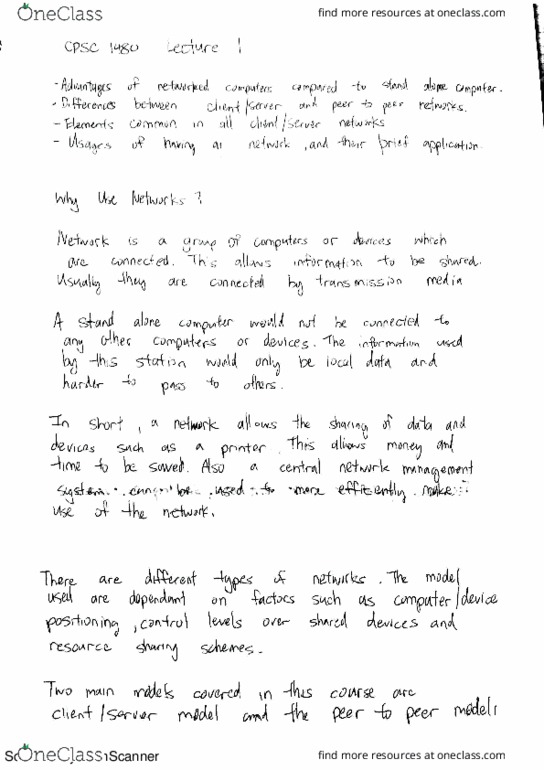 OneClass
find more resources at oneclass.com
CPSC 1480 Lecture 1
- Advantages of networked computers compared to stand alone computer.
- Differences between client/server and peer to peer networks.
- Elements common in all client/server networks
- Usages of having a network, and their brief application.
Why Use Networks?
Network is a group of computers or devices which
are connected. This allows information to be shared.
Usually they are connected by transmission media
A stand alone computer would not be connected to
any other computers or devices. The information used
by this station would only be local data and
harder to pass to others.
In short, a network allows the sharing of data and
devices such as a printer. This allows money and
time to be saved. Also a central network management
system can be used to more efficiently make
use of the network.
There are different types of networks. The model
used are dependant on factors such as computer/device
positioning, control levels over shared devices and
resource sharing schemes.
Two main models covered in this course are
client/server model and the peer to peer model.
OneClass Scanner
find more resources at oneclass.com